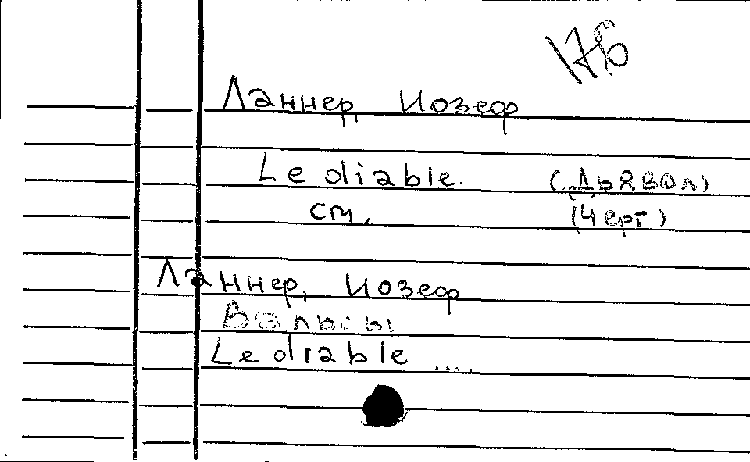 176
Ланнер, Иозеф
Le diable. (Дьявол)
см. (Черт)
Ланнер, Иозеф
Вальсы
Le diable ....